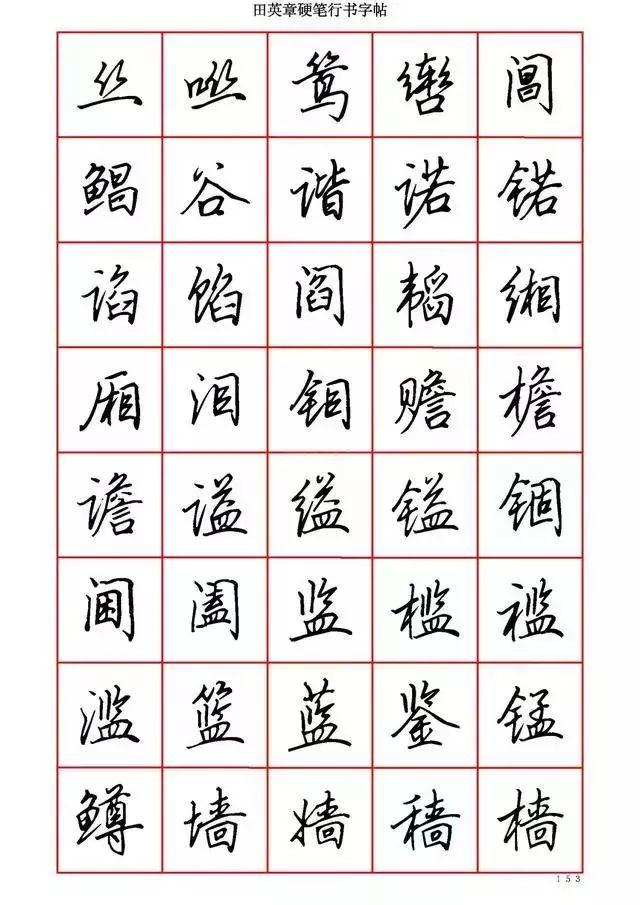 田英章硬笔行书字帖
丝 咝 鸶 阊
鲳 谷 谐 诺 锘
谄 馅 阎 韬 缃
厢 泪 钼 赡 檐
谵 谥 缢 镒 锢
阃 阖 监 槛 褴
滥 篮 蓝 鉴 锰
鳟 墙 嫱 穑 樯
153